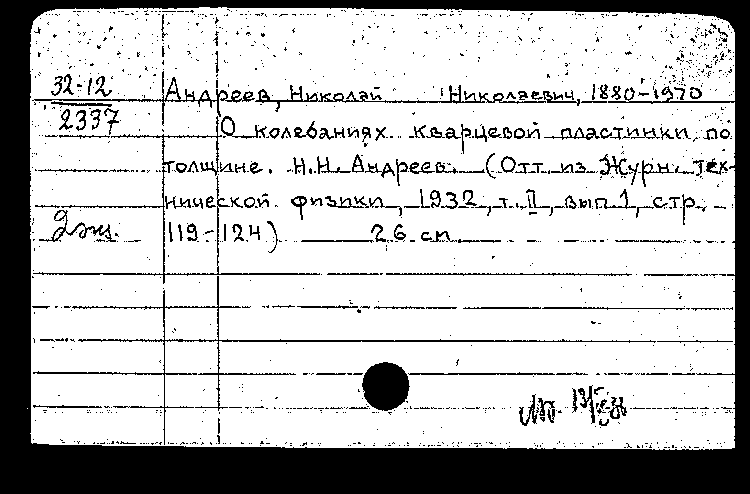 32-12 Андреев, Николай Николаевич, 1880-1970
2337 О колебаниях кварцевой пластинки по
толщине. Н.Н. Андреев. (Отт из Журн. тех-
нической физики, 1932, т. II, вып. 1, стр.
2 экз. 119-124) 26 см